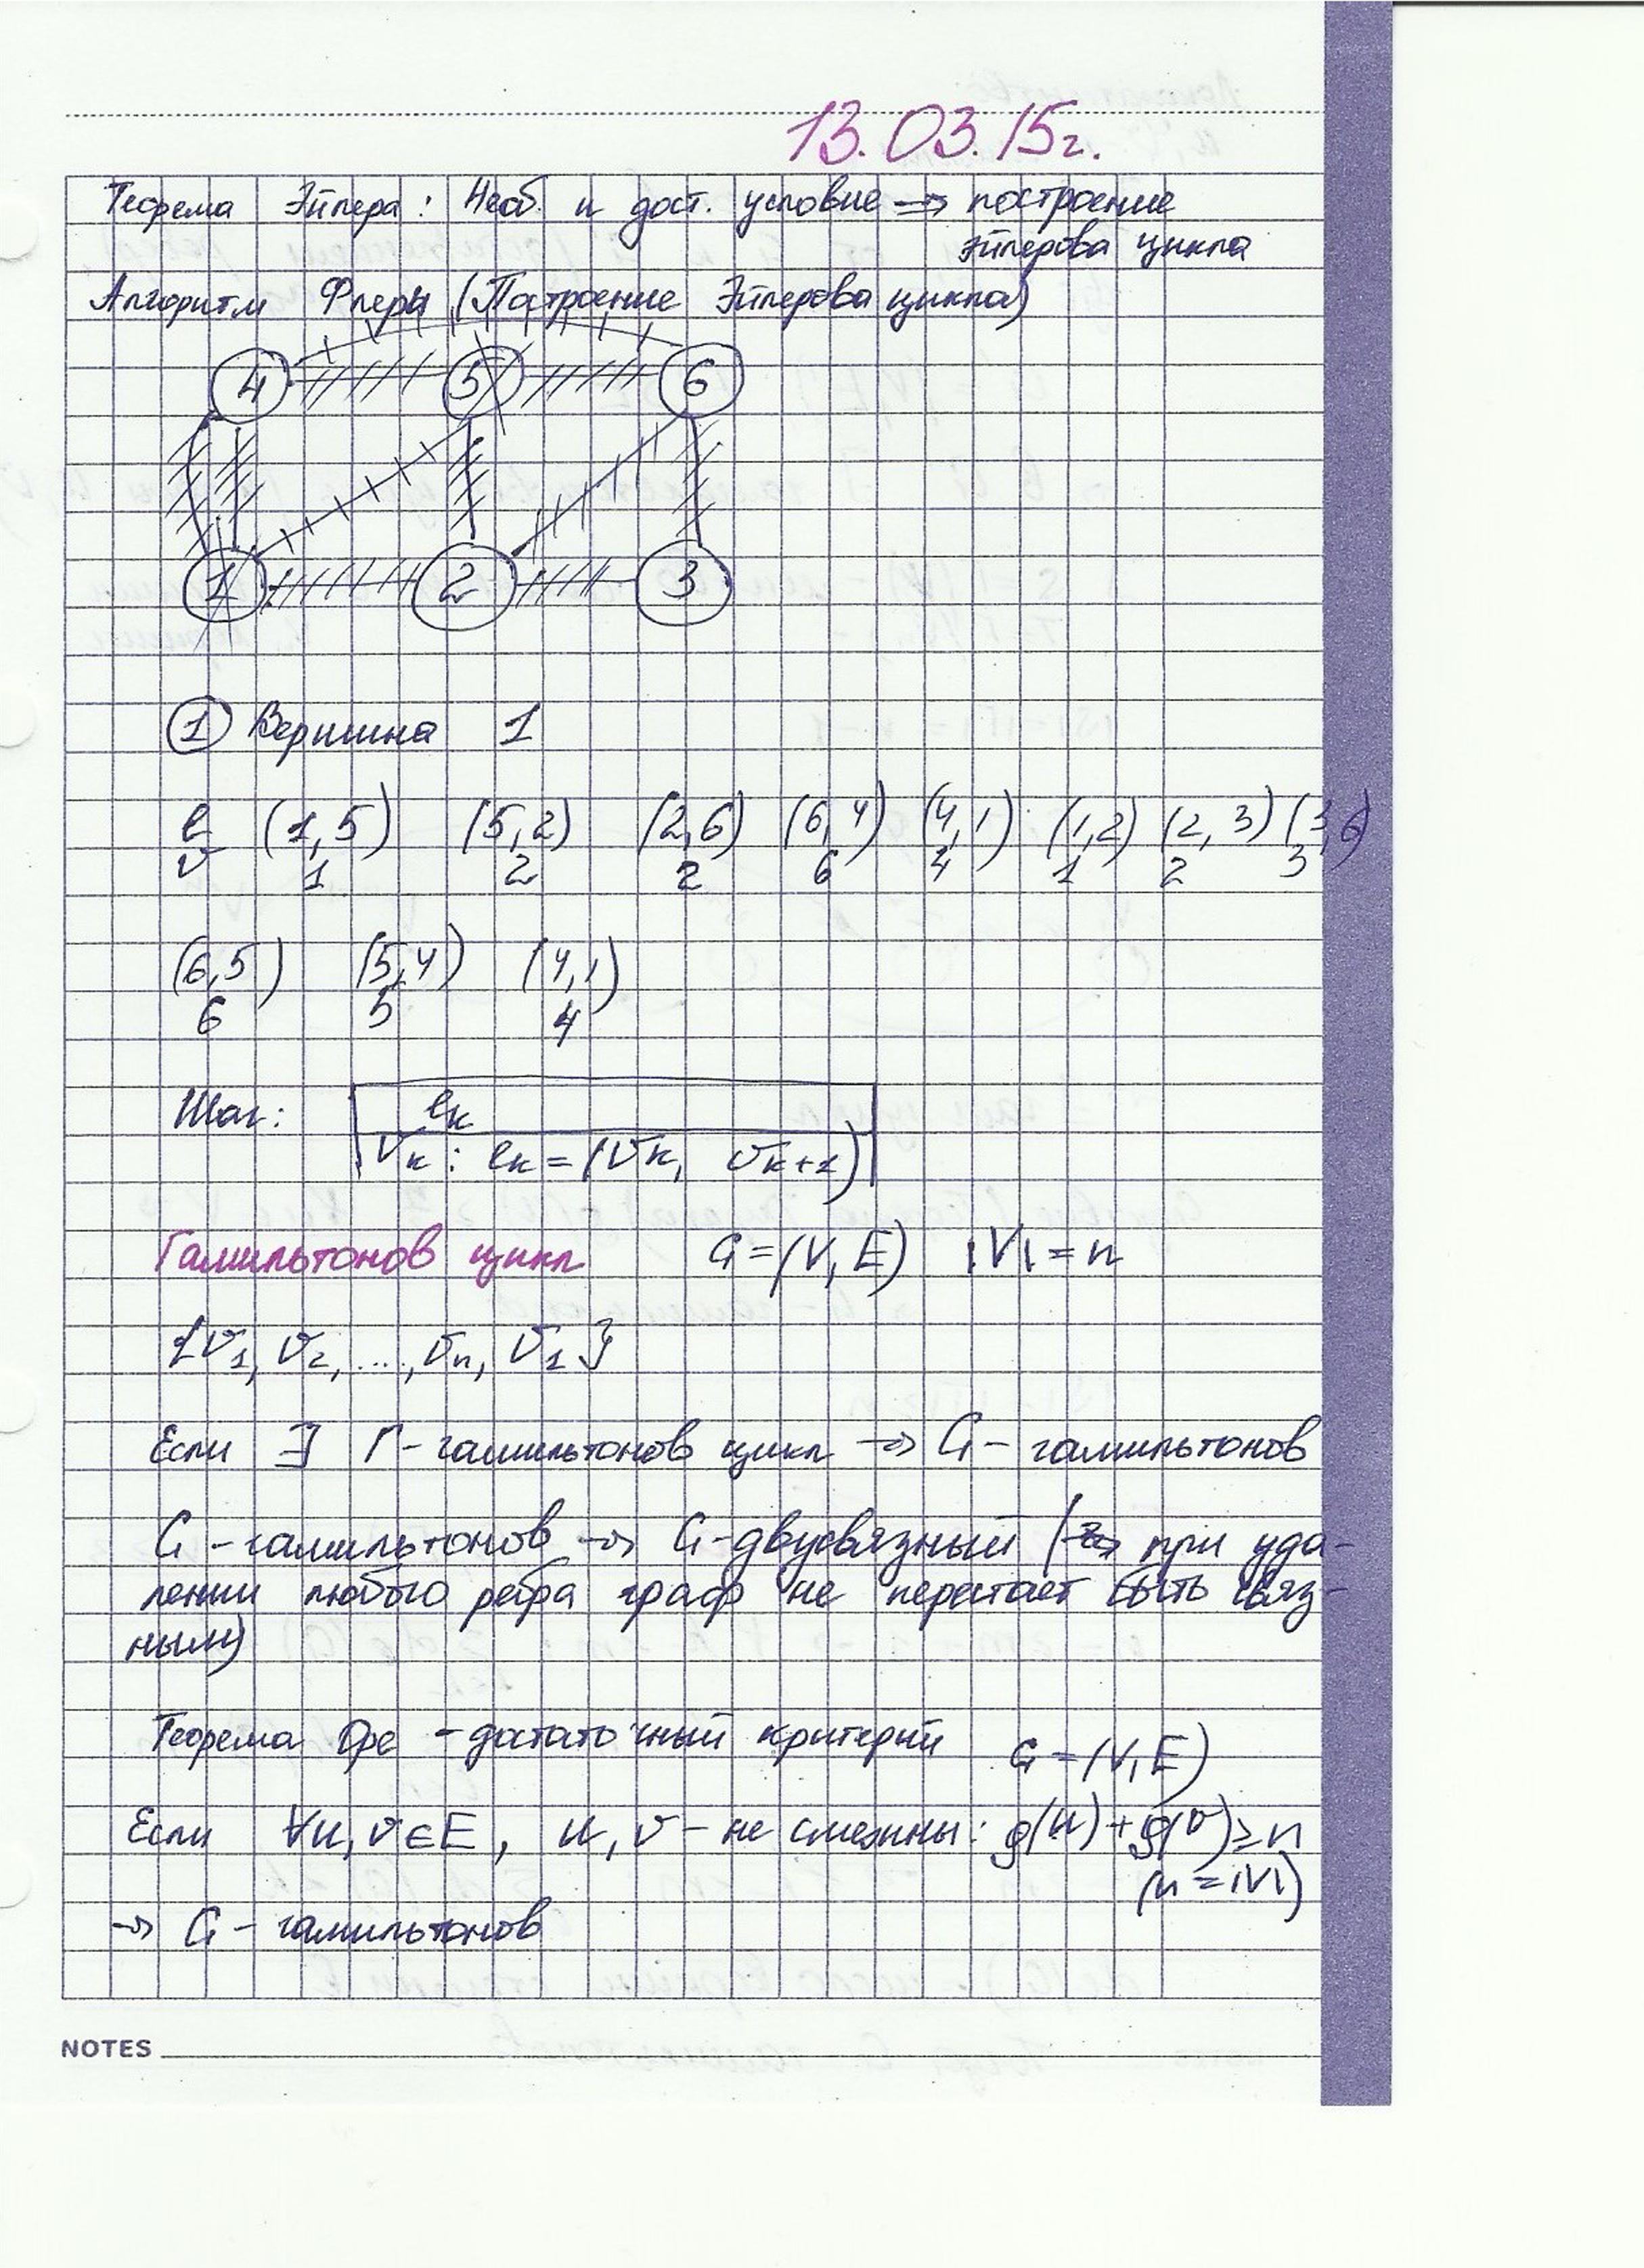 13.03.15г.
Теорема Эйлера: Необ. и дост. условие ⇒ построение
эйлерова цикла
Алгоритм Флери (Построение Эйлерова цикла)
4 5 6
1 2 3
① Вершина 1
e (1,5) (5,2) (2,6) (6,4) (4,1) (1,2) (2,3) (3,6)
v 1 2 2 6 4 1 2 3
(6,5) (5,4) (4,1)
6 5 4
Шаг: eₖ
vₖ: eₖ = (vₖ, vₖ₊₁)
Гамильтонов цикл G=(V,E) |V|=n
{v₁, v₂, ..., vₙ, v₁}
Если ∃ Г-гамильтонов цикл → G-гамильтонов
G-гамильтонов → G-двусвязный (при уда-
лении любого ребра граф не перестает быть связ-
ным)
Теорема Оре - достаточный критерий G=(V,E)
Если ∀u,v∈E, u,v - не смежны: ρ(u)+ρ(v)≥n
(n=|V|)
→ G-гамильтонов
NOTES